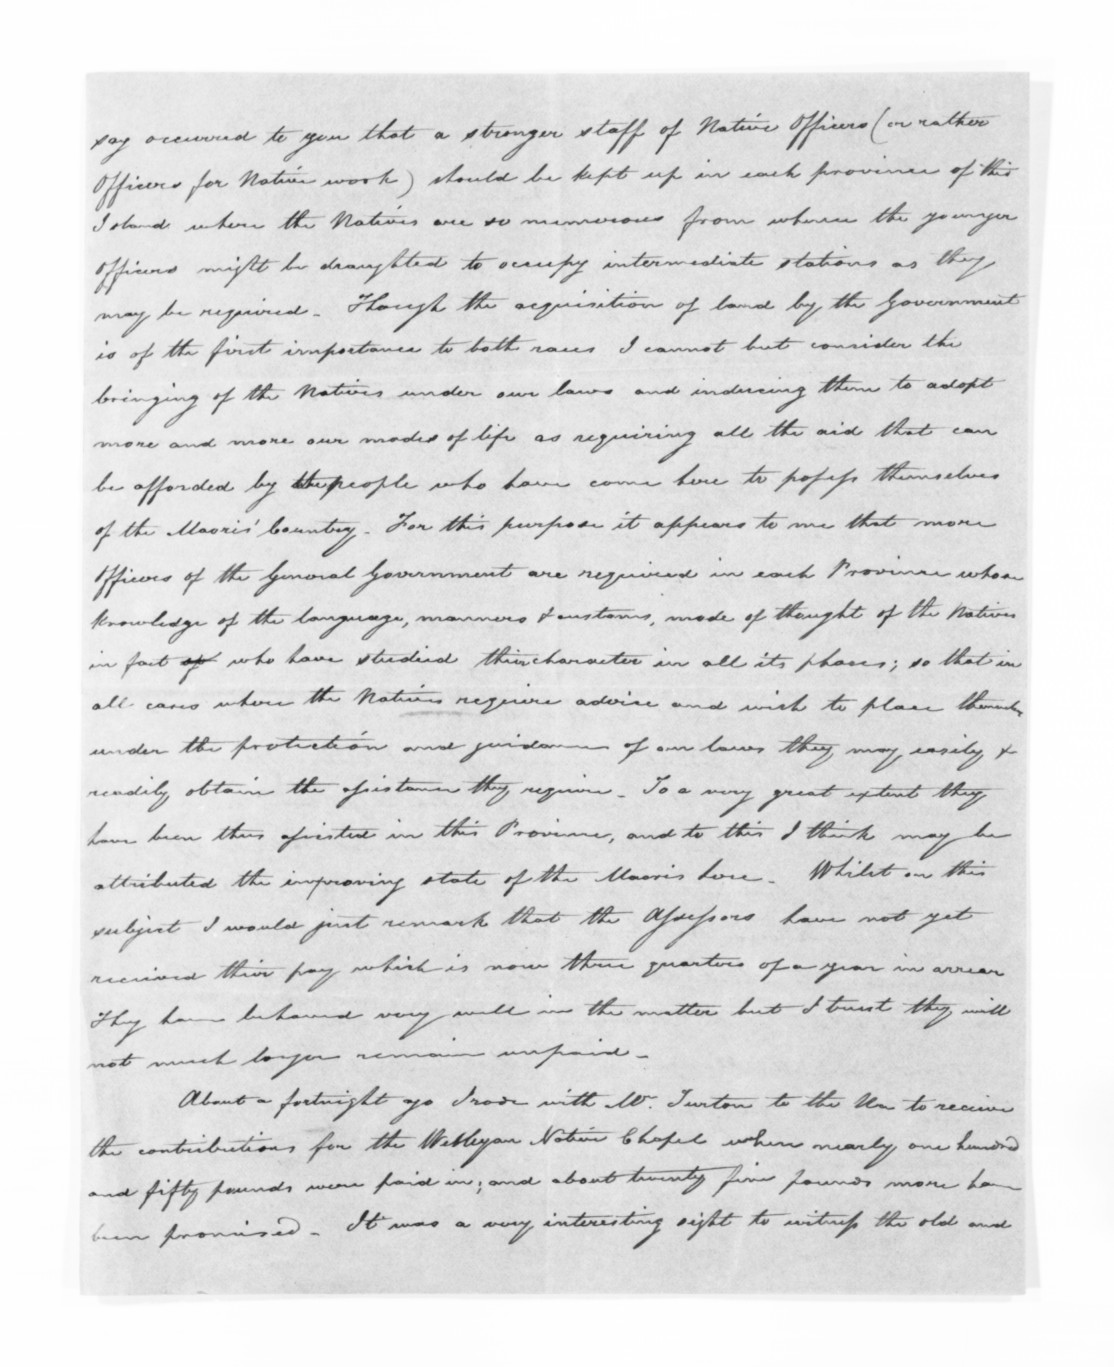 say occurred to you that a stronger staff of Native Officers (or rather
Officers for Native work) should be kept up in each province of this
Island where the Natives are so numerous from whence the younger
Officers might be draughted to occupy intermediate stations as they
may be required - Though the acquisition of land by the Government
is of the first importance to both races I cannot but consider the
bringing of the Natives under our laws and inducing them to adopt
more and more our modes of life as requiring all the aid that can
be afforded by the people who have come here to possess themselves
of the Maoris' Country - For this purpose it appears to me that more
Officers of the General Government are required in each Province whose
knowledge of the language, manners & customs, mode of thought of the Natives
in fact of who have studied their character in all its phases; so that in
all cases where the Natives require advice and wish to place themselves
under the protection and guidance of our laws they may easily &
readily obtain the assistance they require - To a very great extent they
have been thus assisted in this Province, and to this I think may be
attributed the improving state of the Maoris here - Whilst on this
subject I would just remark that the Assessors have not yet
received their pay which is now three quarters of a year in arrear
They have behaved very well in the matter but I trust they will
not much longer remain unpaid -
About a fortnight ago I rode with Mr. Turton to the Ua to receive
the contributions for the Wesleyan Native Chapel when nearly one hundred
and fifty pounds were paid in; and about twenty five pounds more have
been promised - It was a very interesting sight to witness the old and